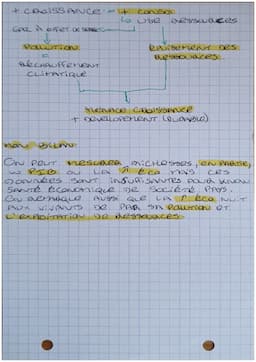 + CROISSANCE = + CONSO
↳ UTIL RESSOURCES
GAZ À EFFET DE SERRE
POLLUTION
ÉPUISEMENT DES
RESSOURCES
=
RÉCHAUFFEMENT
CLIMATIQUE
MENACE CROISSANCE
+ DEVELOPPEMENT (DURABLE)
MON BILAN:
ON PEUT MESURER RICHESSES, EN PARTIE,
PIB OU LA ↗ ÉCO MAIS CES
DONNÉES SONT INSUFFISANTES POUR
SANTÉ ÉCONOMIQUE DE SOCIÉTÉ, PAYS.
ON REMARQUE AUSSI QUE LA ↗ ÉCO NUIT
AUX VIVANTS DE PAR SA POLLUTION ET
L'EXPLOITATION DE RESSOURCES.